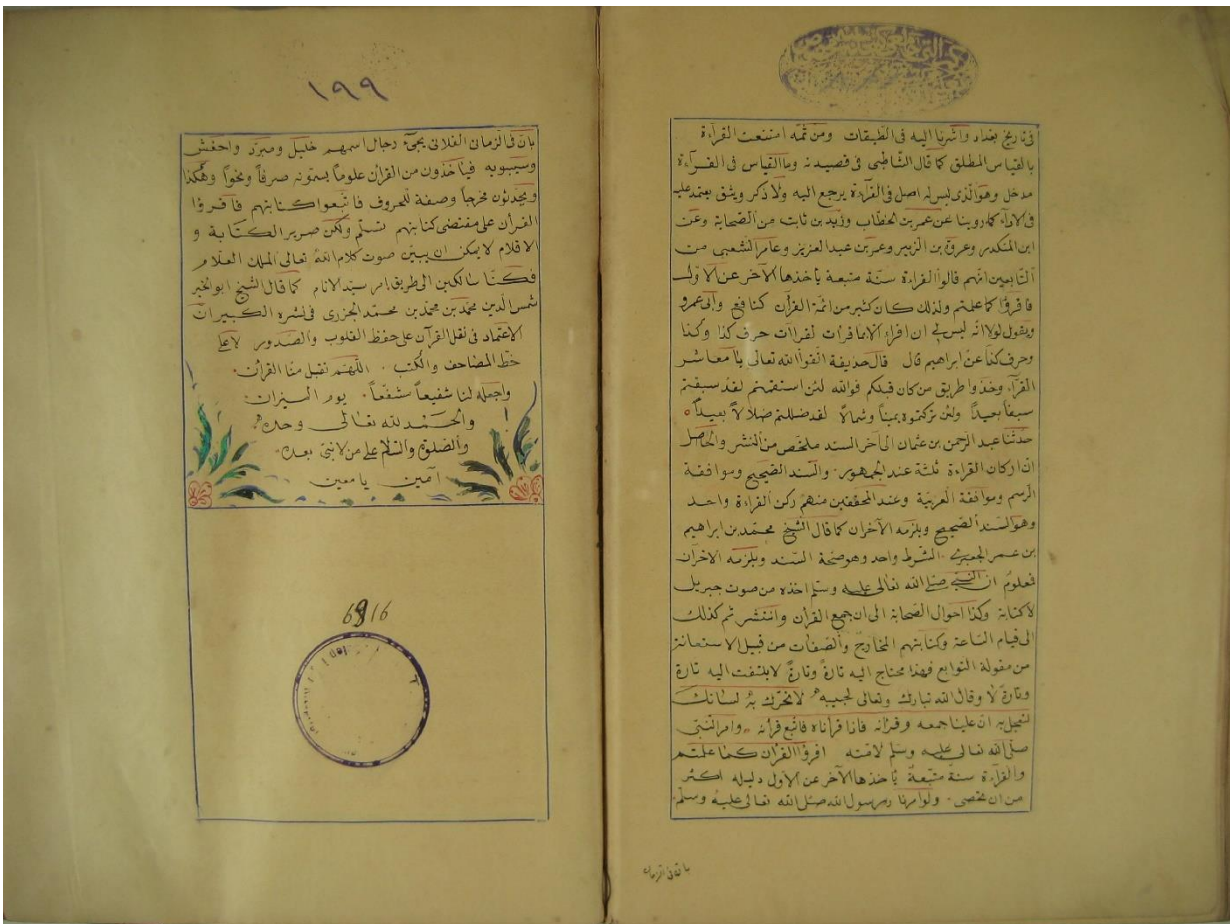 فى تاريخ بغداد واشرنا اليه فى الطبقات ومن ثمه امتنعت القرآءة
بالقياس المطلق كما قال الشاطبى فى قصيدته وما لقياس فى القرآءة
مدخل وهو الذى ليس له اصل فى القرآءة يرجع اليه ولا ذكر وثيق يعتمد عليه
فى الادآء كما روينا عن عمر بن الخطاب وزيد بن ثابت من الصحابة وعن
ابن المنكدر وعروة بن الزبير وعمر بن عبد العزيز وعامر الشعبى من
التابعين انهم قالوا القراءة سنة متبعة يأخذها الآخر عن الاول
فاقرؤا كما علمتم ولذلك كان كثير من ائمة القرآن كنافع وابى عمرو
ويقول لولا انه ليس لى ان اقرأ الا بما قرأت لقرأت حرف كذا وكذا
وحرف كذا عن ابراهيم قال قال حذيفة اتقوا الله تعالى يا معاشر
القرآء وخذوا طريق من كان قبلكم فوالله لئن استقمتم لقد سبقتم
سبقاً بعيداً ولئن تركتموه يميناً وشمالاً لقد ضللتم ضلالاً بعيداً
حدثنا عبد الرحمن بن عثمان الى آخر السند ملخص من النشر والحاصل
ان اركان القراءة ثلثة عند الجمهور والسند الصحيح وموافقة
الرسم وموافقة العربية وعند المحققين منهم ركن القراءة واحد
وهو السند الصحيح ويلزمه الآخران كما قال الشيخ محمد بن ابراهيم
بن عمر الجعبرى الشرط واحد وهو صحة السند ويلزمه الاخران
فعلوم ان النبى صلى الله تعالى عليه وسلم اخذه من صوت جبريل
لا كتابة وكذا احوال الصحابة الى ان جمع القرآن وانتشر ثم كذلك
الى قيام الساعة وكتابتهم المخارج والصفات من قبيل الاستعانة
من مقولة التوابع فهذا محتاج اليه تارة وتارةً لا يلتفت اليه تارة
وتارة لا وقال الله تبارك وتعالى لحبيبه لا تحرك به لسانك
لتعجل به ان علينا جمعه وقرآنه فاذا قرأناه فاتبع قرآنه وامر النبى
صلى الله تعالى عليه وسلم لامته اقرؤا القرآن كما علمتم
والقرآءة سنة متبعةٌ يأخذها الآخر عن الاول دليله اكثر
من ان تحصى ولو امرنا رسول الله صلى الله تعالى عليه وسلم
بان فى الزمان
١٩٩
بان فى الزمان الفلانى يجئ رجال اسمهم خليل ومبرد واخفش
وسيبويه فيأخذون من القرآن علوماً يسمونه صرفاً ونحواً وهكذا
ويحدثون مخرجاً وصفة للحروف فاتبعوا كتابتهم فاقرؤا
القرآن على مقتضى كتابتهم تسلم ولكن صرير الكتابة و
الاقلام لا يمكن ان يبين صوت كلام الله تعالى الملك العلام
فكنا سالكين الى طريق امر سيد الانام كما قال الشيخ ابو الخير
شمس الدين محمد بن محمد بن محمد الجزرى فى نشره الكبير ان
الاعتماد فى نقل القرآن على حفظ القلوب والصدور لا على
خط المصاحف والكتب اللهم تقبل منا القرآن
واجعله لنا شفيعاً مشفعاً يوم الميزان
والحمد لله تعالى وحده
والصلوة والسلام على من لا نبى بعده
آمين يا معين
6816